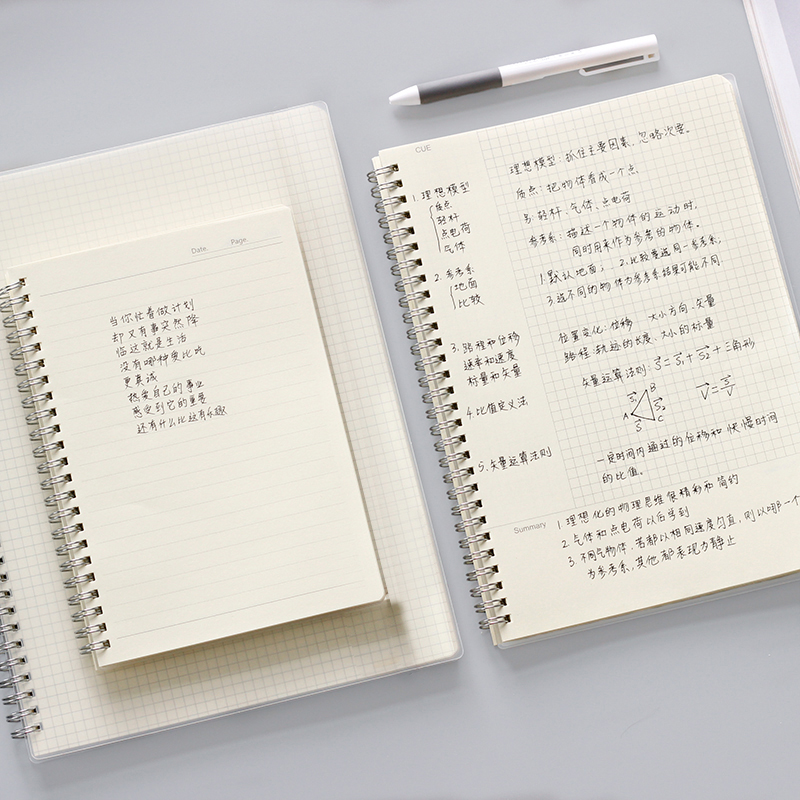 Date.
Page.
当你忙着做计划
却又有事突然降
临这就是生活
没有哪种爱比吃
更真诚
热爱自己的事业
感受到它的重量
还有什么比这有乐趣
CUE
1. 理想模型
质点
轻杆
点电荷
气体
2. 参考系
地面
比较
3. 路程和位移
速率和速度
标量和矢量
4. 比值定义法
5. 矢量运算法则
理想模型：抓住主要因素，忽略次要。
质点：把物体看成一个点
轻杆、气体、点电荷
参考系：描述一个物体的运动时，
同时用来作为参考的物体。
1. 默认地面； 2. 比较要选同一参考系，
3. 选不同的物体为参考系结果可能不同.
位置变化：位移 大小方向、矢量
路程：轨迹的长度、大小的标量
矢量运算法则：S=S₁+S₂+三角形
B
S₁
S₂
A
S
C
一定时间内通过的位移和快慢时间
的比值。
Summary
1. 理想化的物理思维很精彩和简约
2. 气体和点电荷以后学到
3. 不同气物体，若都以相同速度匀直，则以哪一个
为参考系，其他都表现为静止